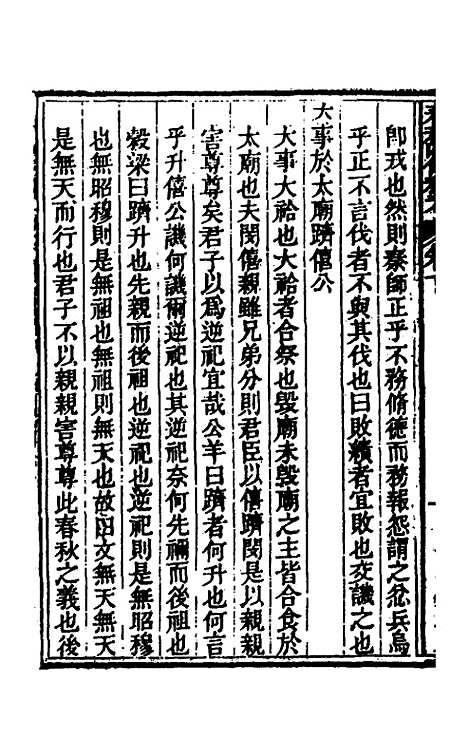 卽戎也然則秦師正乎不務脩德而務報怨謂之忿兵烏
乎正不言伐者不與其伐也曰敗績者宜敗也交譏之也
大事於太廟躋僖公
大事大祫也大祫者合祭也毀廟未毀廟之主皆合食於
太廟也夫閔僖親雖兄弟分則君臣以僖躋閔是以親親
害尊尊矣君子以爲逆祀宜哉公羊曰躋者何升也何言
乎升僖公譏何譏爾逆祀也其逆祀奈何先禰而後祖也
穀梁曰躋升也先親而後祖也逆祀也逆祀則是無昭穆
也無昭穆則是無祖也無祖則無天也故曰文無天無天
是無天而行也君子不以親親害尊尊此春秋之義也後